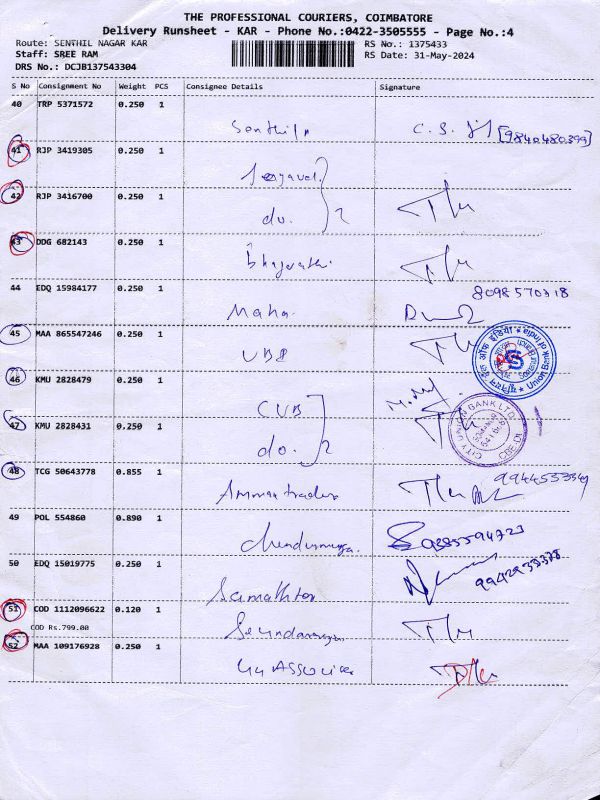 THE PROFESSIONAL COURIERS, COIMBATORE
Delivery Runsheet - KAR - Phone No.:0422-3505555 - Page No.:4
Route: SENTHIL NAGAR KAR RS No.: 1375433
Staff: SREE RAM RS Date: 31-May-2024
DRS No.: DCJB137543304
S No Consignment No Weight PCS Consignee Details Signature
40 TRP 5371572 0.250 1
Senthil C. S. [9840480399]
41 RJP 3419305 0.250 1
42 RJP 3416700 0.250 1
do. 2
43 DDG 682143 0.250 1
44 EDQ 15984177 0.250 1
8098570318
Maha
45 MAA 865547246 0.250 1
UBI
Union Bank of India
यूनियन बैंक ऑफ इंडिया
46 KMU 2828479 0.250 1
CUB
CITY UNION BANK LTD.
47 KMU 2828431 0.250 1
do. 2
48 TCG 50643778 0.855 1
Amman traders
49 POL 554860 0.890 1
9385594723
50 EDQ 15019775 0.250 1
51 COD 1112096622 0.120 1
COD Rs.799.00
52 MAA 109176928 0.250 1